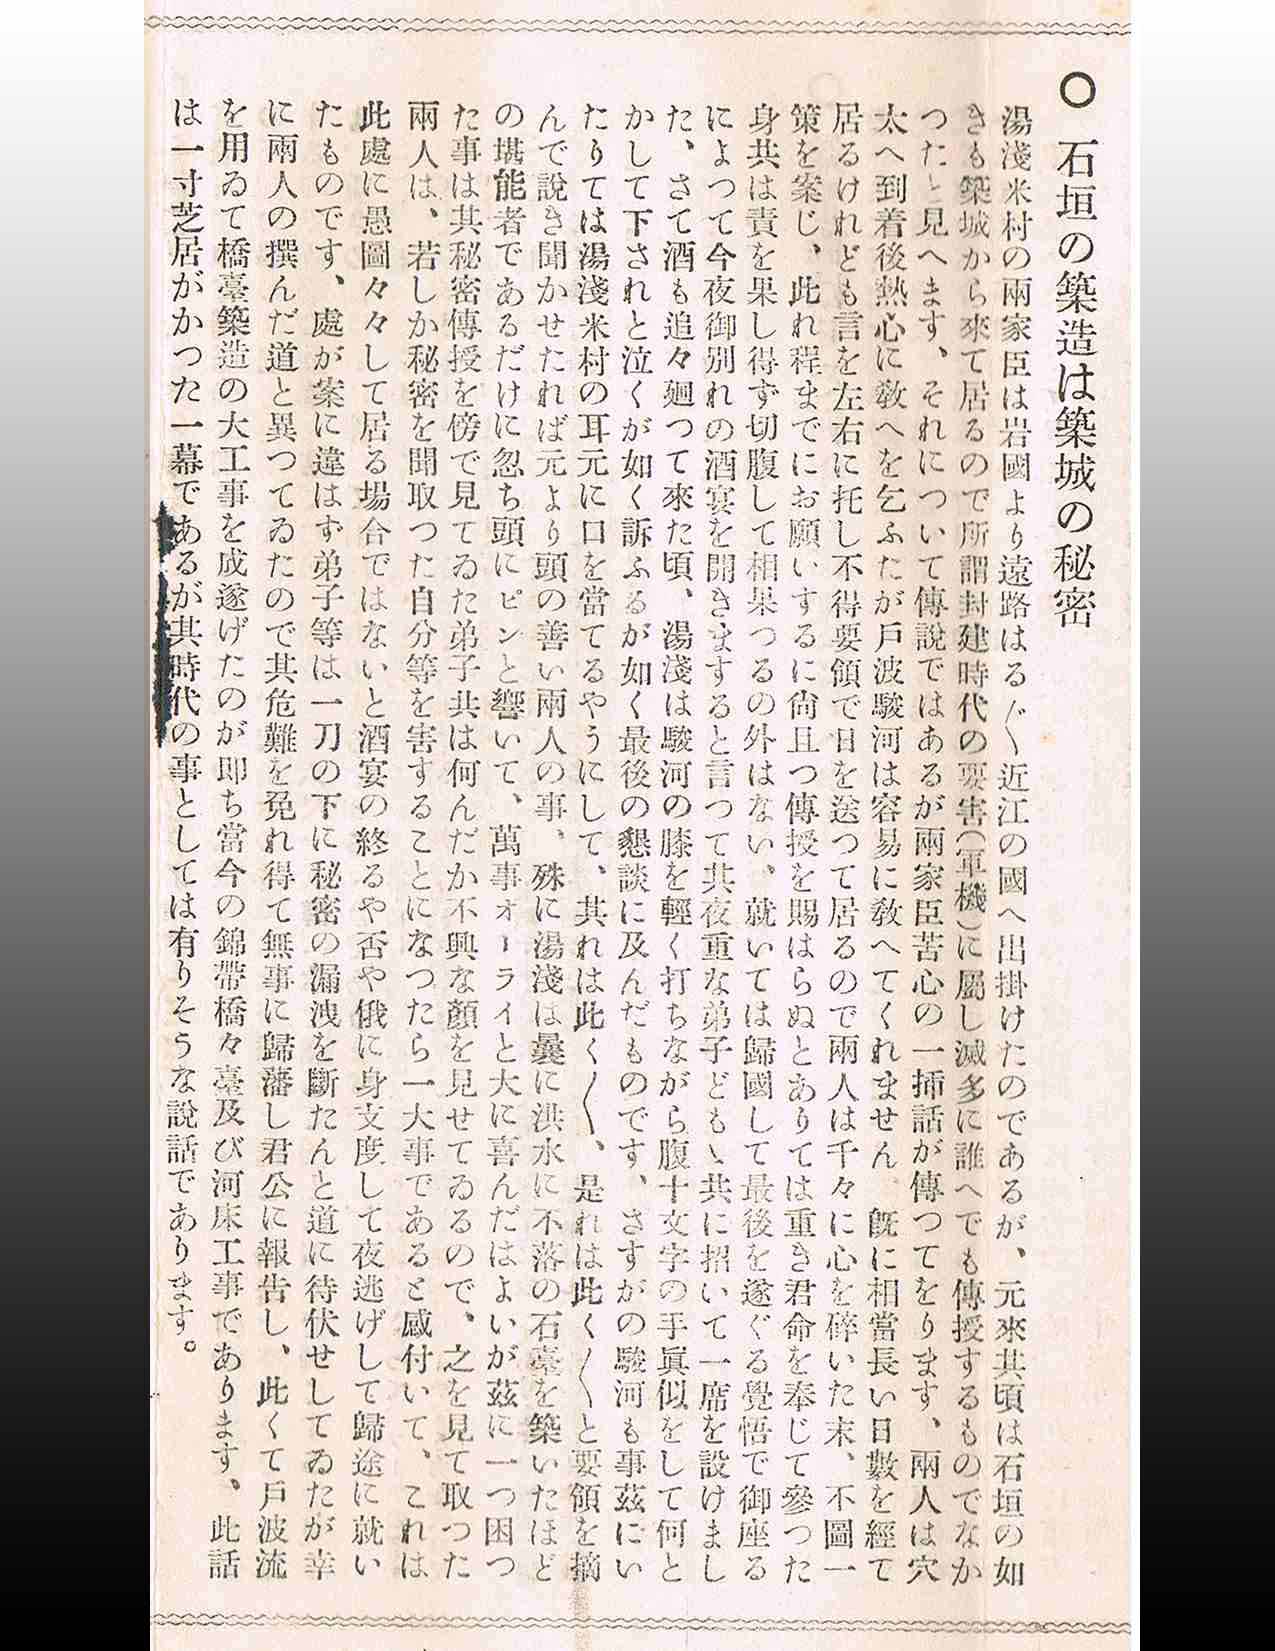 ○ 石垣の築造は築城の秘密
湯淺米村の兩家臣は岩國より遠路はる〴〵近江の國へ出掛けたのであるが、元來其頃は石垣の如
きも築城から來て居るので所謂封建時代の要害(軍機)に屬し滅多に誰へでも傳授するものでなか
つたと見へます、それについて傳說ではあるが兩家臣苦心の一揷話が傳つてをります、兩人は穴
太へ到着後熱心に敎へを乞ふたが戶波駿河は容易に敎へてくれません、旣に相當長い日數を經て
居るけれども言を左右に托し不得要領で日を送つて居るので兩人は千々に心を碎いた末、不圖一
策を案じ、此れ程までにお願いするに尙且つ傳授を賜はらぬとありては重き君命を奉じて參つた
身共は責を果し得ず切腹して相果つるの外はない、就いては歸國して最後を遂ぐる覺悟で御座る
によつて今夜御別れの酒宴を開きまするを言つて其夜重な弟子どもゝ共に招いて一席を設けまし
た、さて酒も追々廻つて來た頃、湯淺は駿河の膝を輕く打ちながら腹十文字の手眞似をして何と
かして下されと泣くが如く訴ふるが如く最後の懇談に及んだものです、さすがの駿河も事茲にい
たりては湯淺米村の耳元に口を當てるやうにして、其れは此く〳〵、是れは此く〳〵と要領を摘
んで說き聞かせたれば元より頭の善い兩人の事、殊に湯淺は曩に洪水に不落の石臺を築いたほど
の堪能者であるだけに忽ち頭にピンと響いて、萬事オーライと大に喜んだはよいが茲に一つ困つ
た事は其秘密傳授を傍で見てゐた弟子共は何んだか不興な顏を見せてゐるので、之を見て取つた
兩人は、若しか秘密を聞取つた自分等を害することになつたら一大事であると感付いて、これは
此處に愚圖々々して居る場合ではないと酒宴の終るや否や俄に身支度して夜逃げして歸途に就い
たものです、處が案に違はず弟子等は一刀の下に秘密の漏洩を斷たんと道に待伏せしてゐたが幸
に兩人の撰んだ道と異つてゐたので其危難を免れ得て無事に歸藩し君公に報告し、此くて戶波流
を用ゐて橋臺築造の大工事を成遂げたのが卽ち當今の錦帶橋々臺及び河床工事であります、此話
は一寸芝居がかつた一幕であるが其時代の事としては有りそうな說話であります。